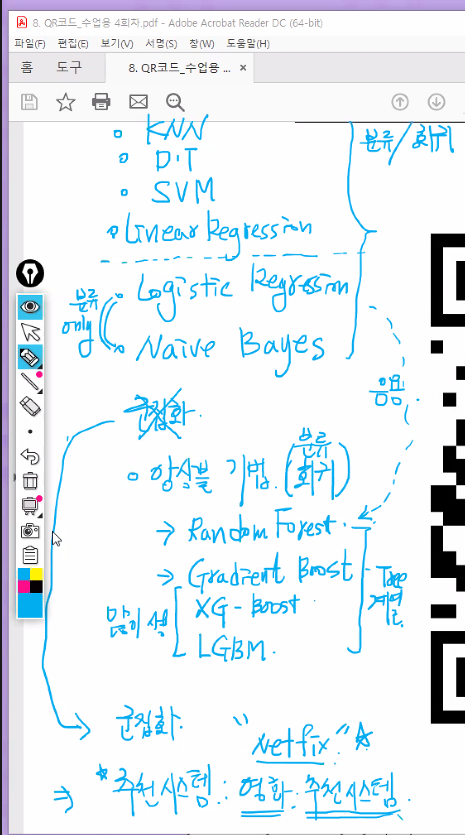 8. QR코드_수업용 4회차.pdf - Adobe Acrobat Reader DC (64-bit)
파일(F) 편집(E) 보기(V) 서명(S) 창(W) 도움말(H)
홈 도구 8. QR코드_수업용 ... ×
KNN 분류/회귀
D.T
SVM
Linear Regression
분류 only
Logistic Regression
Naive Bayes
응용.
군집화.
앙상블 기법. (분류 회귀)
→ Random Forest.
→ Gradient Boost Tree
XG-Boost
LGBM.
→ 군집화. "Netfix" ☆
⇒ *추천시스템: 영화: 추천시스템.